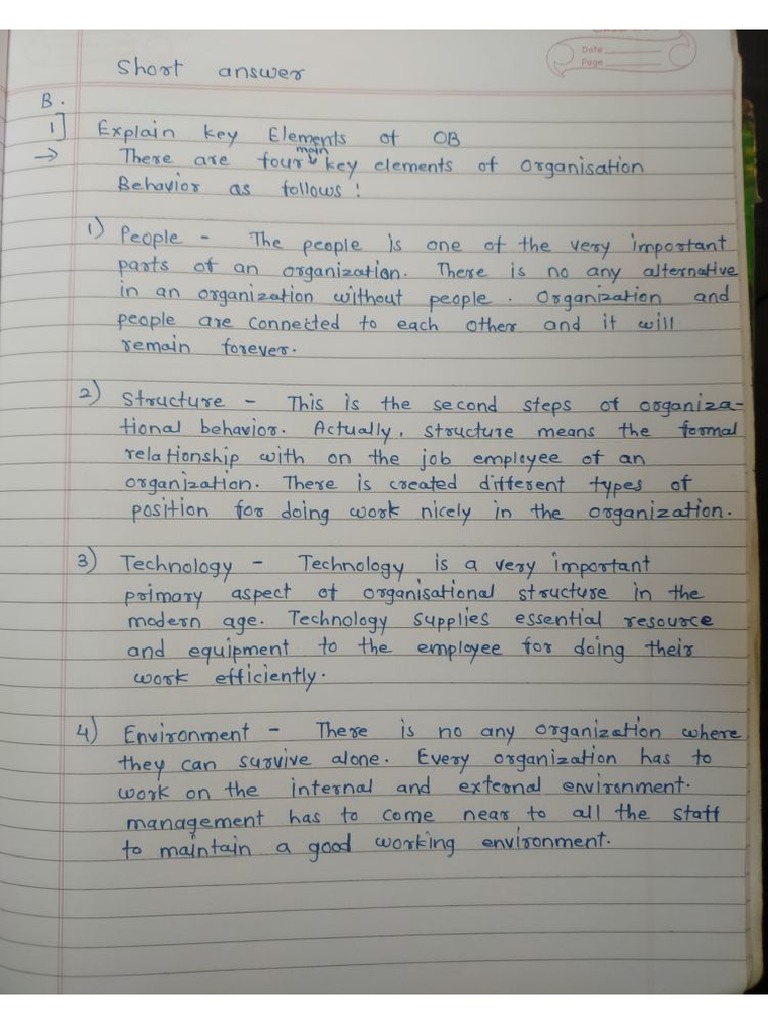 Date
Page
Short answer
B.
1] Explain key Elements of OB
→ There are four main key elements of Organisation
Behavior as follows :
1) People - The people is one of the very important
parts of an organization. There is no any alternative
in an organization without people. Organization and
people are connected to each other and it will
remain forever.
2) Structure - This is the second steps of organiza-
tional behavior. Actually, structure means the formal
relationship with on the job employee of an
organization. There is created different types of
position for doing work nicely in the organization.
3) Technology - Technology is a very important
primary aspect of organisational structure in the
modern age. Technology supplies essential resource
and equipment to the employee for doing their
work efficiently.
4) Environment - There is no any organization where
they can survive alone. Every organization has to
work on the internal and external environment.
management has to come near to all the staff
to maintain a good working environment.